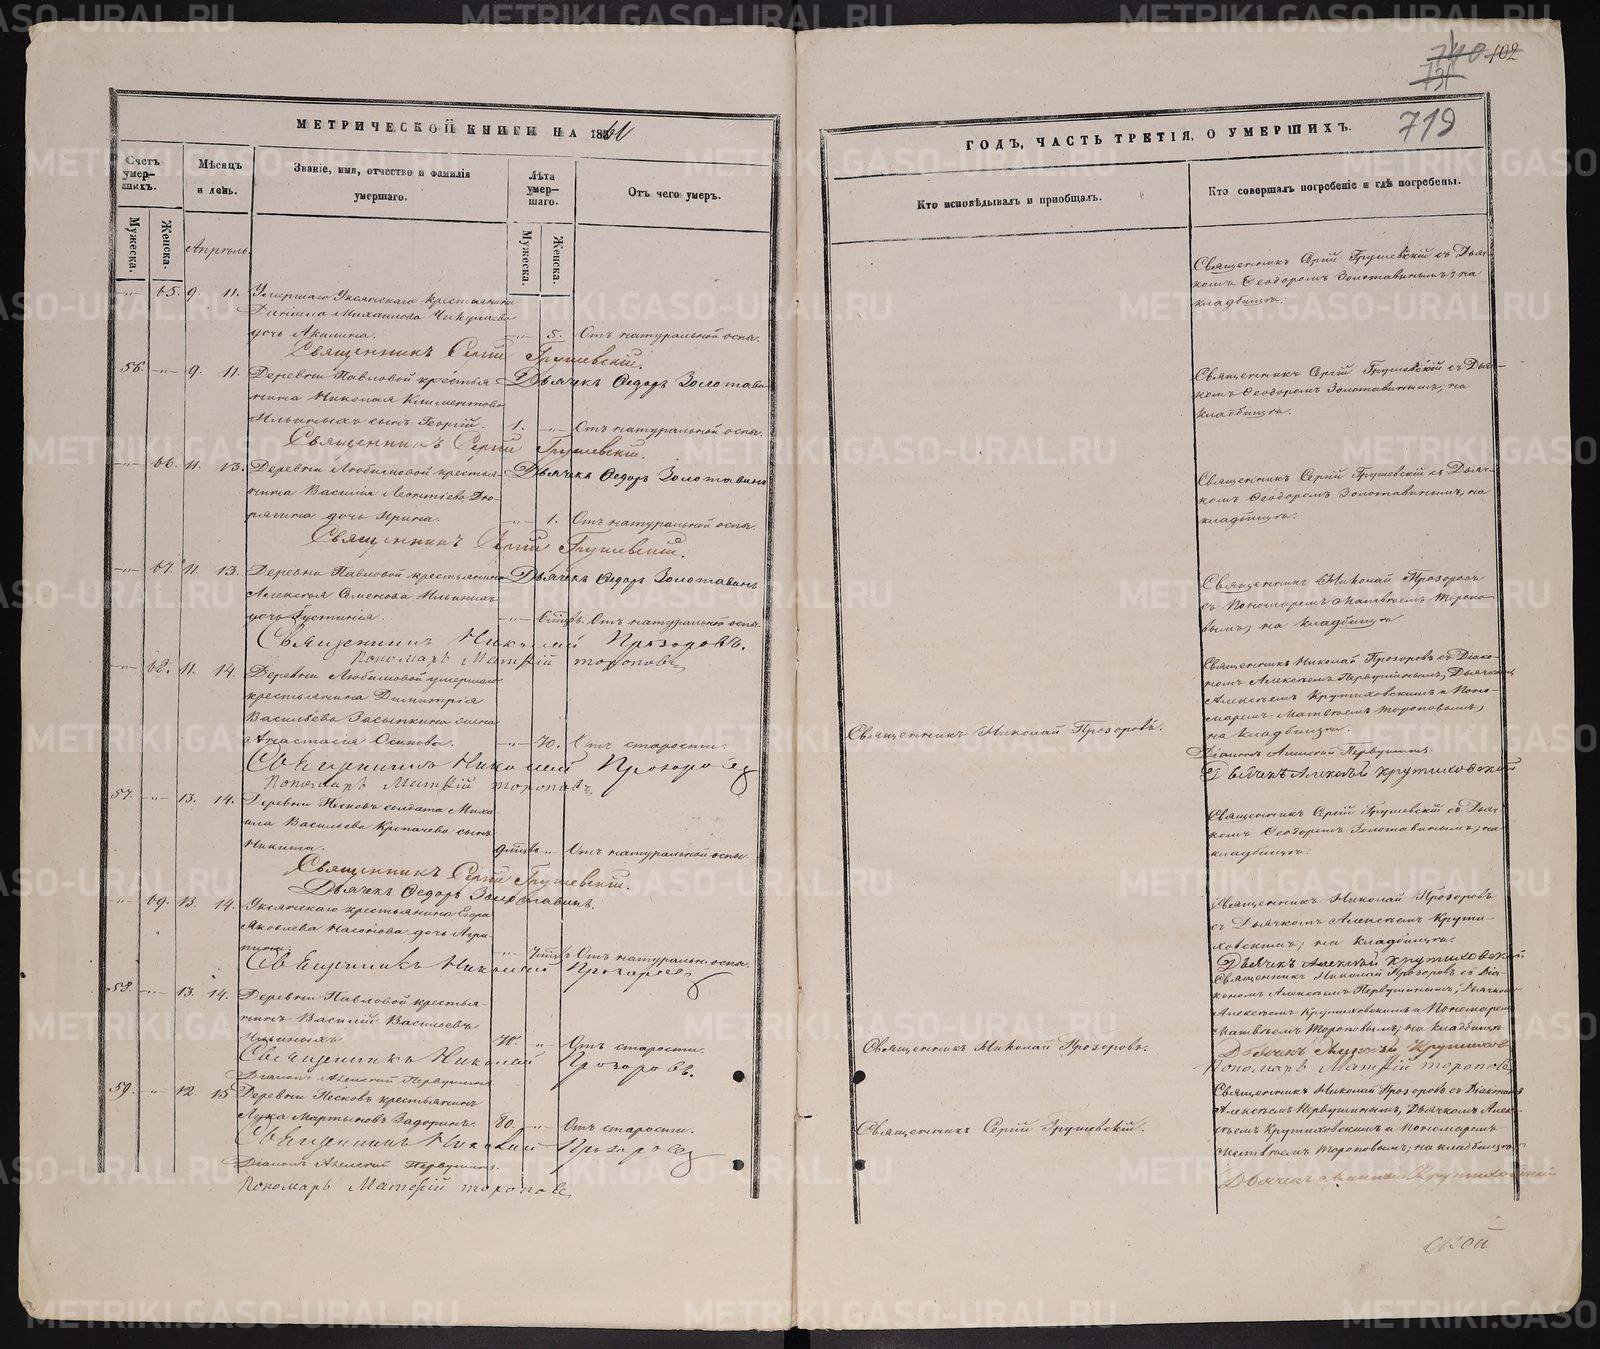 740 102
131
719
МЕТРИЧЕСКОЙ КНИГИ НА 1861
Счетъ умер-шихъ.
Мѣсяцъ и день.
Званіе, имя, отчество и фамилія умершаго.
Лѣта умер-шаго.
Отъ чего умеръ.
Мужеска.
Женска.
Мужеска.
Женска.
Апрѣль.
65. 9. 11. Умершаго Уксянскаго крестьянина
Михаилова
дочь Акилина. 5. Отъ натуральной оспы.
Священникъ Сергій Грушевскій.
Дьячекъ Ѳедоръ Золотавинъ
56. 9. 11. Деревни Павловой крестья-
нина Николая Климентова
Ильиныхъ сынъ Георгій. 1. Отъ натуральной оспы.
Священникъ Сергій Грушевскій.
Дьячекъ Ѳедоръ Золотавинъ
66. 11. 13. Деревни Любимовой крестья-
нина Василія Леонтіева
дочь Ирина. 1. Отъ натуральной оспы.
Священникъ Сергій Грушевскій.
Дьячекъ Ѳедоръ Золотавинъ
67. 11. 13. Деревни Павловой крестьянина
Алексѣя Семенова Ильиныхъ
дочь Іустинія. Отъ натуральной оспы.
Священникъ Николай Прозоровъ.
Пономарь Матѳій Тороповъ
11. 14. Деревни Любимовой умершаго
крестьянина Димитрія
Васильева Засыпкина жена
Анастасія Осипова. 70. Отъ старости.
Священникъ Николай Прозоровъ
Пономарь Матѳій Тороповъ
57. 13. 14. Деревни Песковъ солдата Миха-
ила Васильева Кропачева сынъ
Никита. Отъ натуральной оспы.
Священникъ Сергій Грушевскій.
Дьячекъ Ѳедоръ Золотавинъ.
69. 13. 14. Уксянскаго крестьянина Егора
Яковлева дочь Агри-
пина. Отъ натуральн. оспы.
Священникъ Николай Прозоровъ
58. 13. 14. Деревни Павловой крестья-
нинъ Василій Васильевъ
Ильиныхъ 70. Отъ старости.
Священникъ Николай Прозоровъ.
Діаконъ Алексѣй Первушинъ
59. 12. 15 Деревни Песковъ крестьянинъ
Лука Мартыновъ Задоринъ. 80. Отъ старости.
Священникъ Николай Прозоровъ
Діаконъ Алексѣй Первушинъ.
Пономарь Матѳій Тороповъ
ГОДЪ, ЧАСТЬ ТРЕТІЯ, О УМЕРШИХЪ.
Кто исповѣдывалъ и пріобщалъ.
Кто совершалъ погребеніе и гдѣ погребены.
Священникъ Сергій Грушевскій съ Дьяч-
комъ Ѳеодоромъ Золотавинымъ; на
кладбищѣ.
Священникъ Сергій Грушевскій съ Дьяч-
комъ Ѳеодоромъ Золотавинымъ; на
кладбищѣ.
Священникъ Сергій Грушевскій съ Дьяч-
комъ Ѳеодоромъ Золотавинымъ; на
кладбищѣ.
Священникъ Николай Прозоровъ
съ Пономаремъ Матвѣемъ Торопо-
вымъ; на кладбищѣ
Священникъ Николай Прозоровъ.
Священникъ Николай Прозоровъ съ Діако-
номъ Алексѣемъ Первушинымъ, Дьячкомъ
Алексѣемъ Крутиховскимъ и Поно-
маремъ Матвѣемъ Тороповымъ;
на кладбищѣ.
Діаконъ Алексѣй Первушинъ.
Дьячекъ Алексѣй Крутиховскій
Священникъ Сергій Грушевскій съ Дьяч-
комъ Ѳеодоромъ Золотавинымъ; на
кладбищѣ.
Священникъ Николай Прозоровъ
съ Дьячкомъ Алексѣемъ Крути-
ховскимъ; на кладбищѣ.
Дьячекъ Алексѣй Крутиховскій
Священникъ Николай Прозоровъ.
Священникъ Николай Прозоровъ съ Діа-
кономъ Алексѣемъ Первушинымъ, Дьячкомъ
Алексѣемъ Крутиховскимъ и Пономаремъ
Матвѣемъ Тороповымъ; на кладбищѣ.
Дьячекъ Алексѣй Крутихов
Пономарь Матѳій Тороповъ
Священникъ Сергій Грушевскій.
Священникъ Николай Прозоровъ съ Діакономъ
Алексѣемъ Первушинымъ, Дьячкомъ Алек-
сѣемъ Крутиховскимъ и Пономаремъ
Матвѣемъ Тороповымъ; на кладбищѣ
Дьячекъ Алексѣй Крутиховскій
METRIKI.GASO-URAL.RU